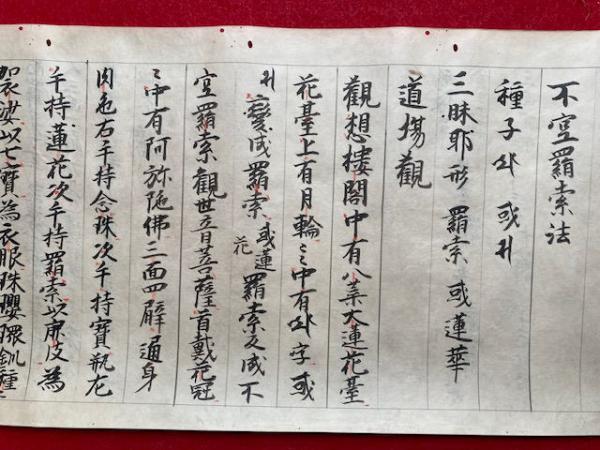 不空羂索法
種子 或
三昧耶形 羂索 或蓮華
道場觀
觀想樓閣中有八葉大蓮花臺
花臺上有月輪〻中有 字 或
變成羂索 或蓮花 羂索反成不
空羂索觀世音菩薩首戴花冠
〻中有阿弥陁佛三面四臂通身
肉色右手持念珠次手持寶瓶左
手持蓮花次手持羂索以鹿皮為
袈裟以七寶為衣服珠瓔環釧種〻